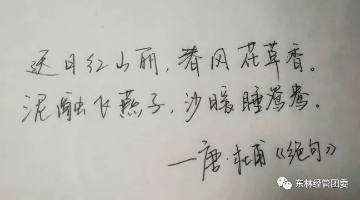 迟日江山丽，春风花草香。
泥融飞燕子，沙暖睡鸳鸯。
—唐·杜甫《绝句》
东林经管团委